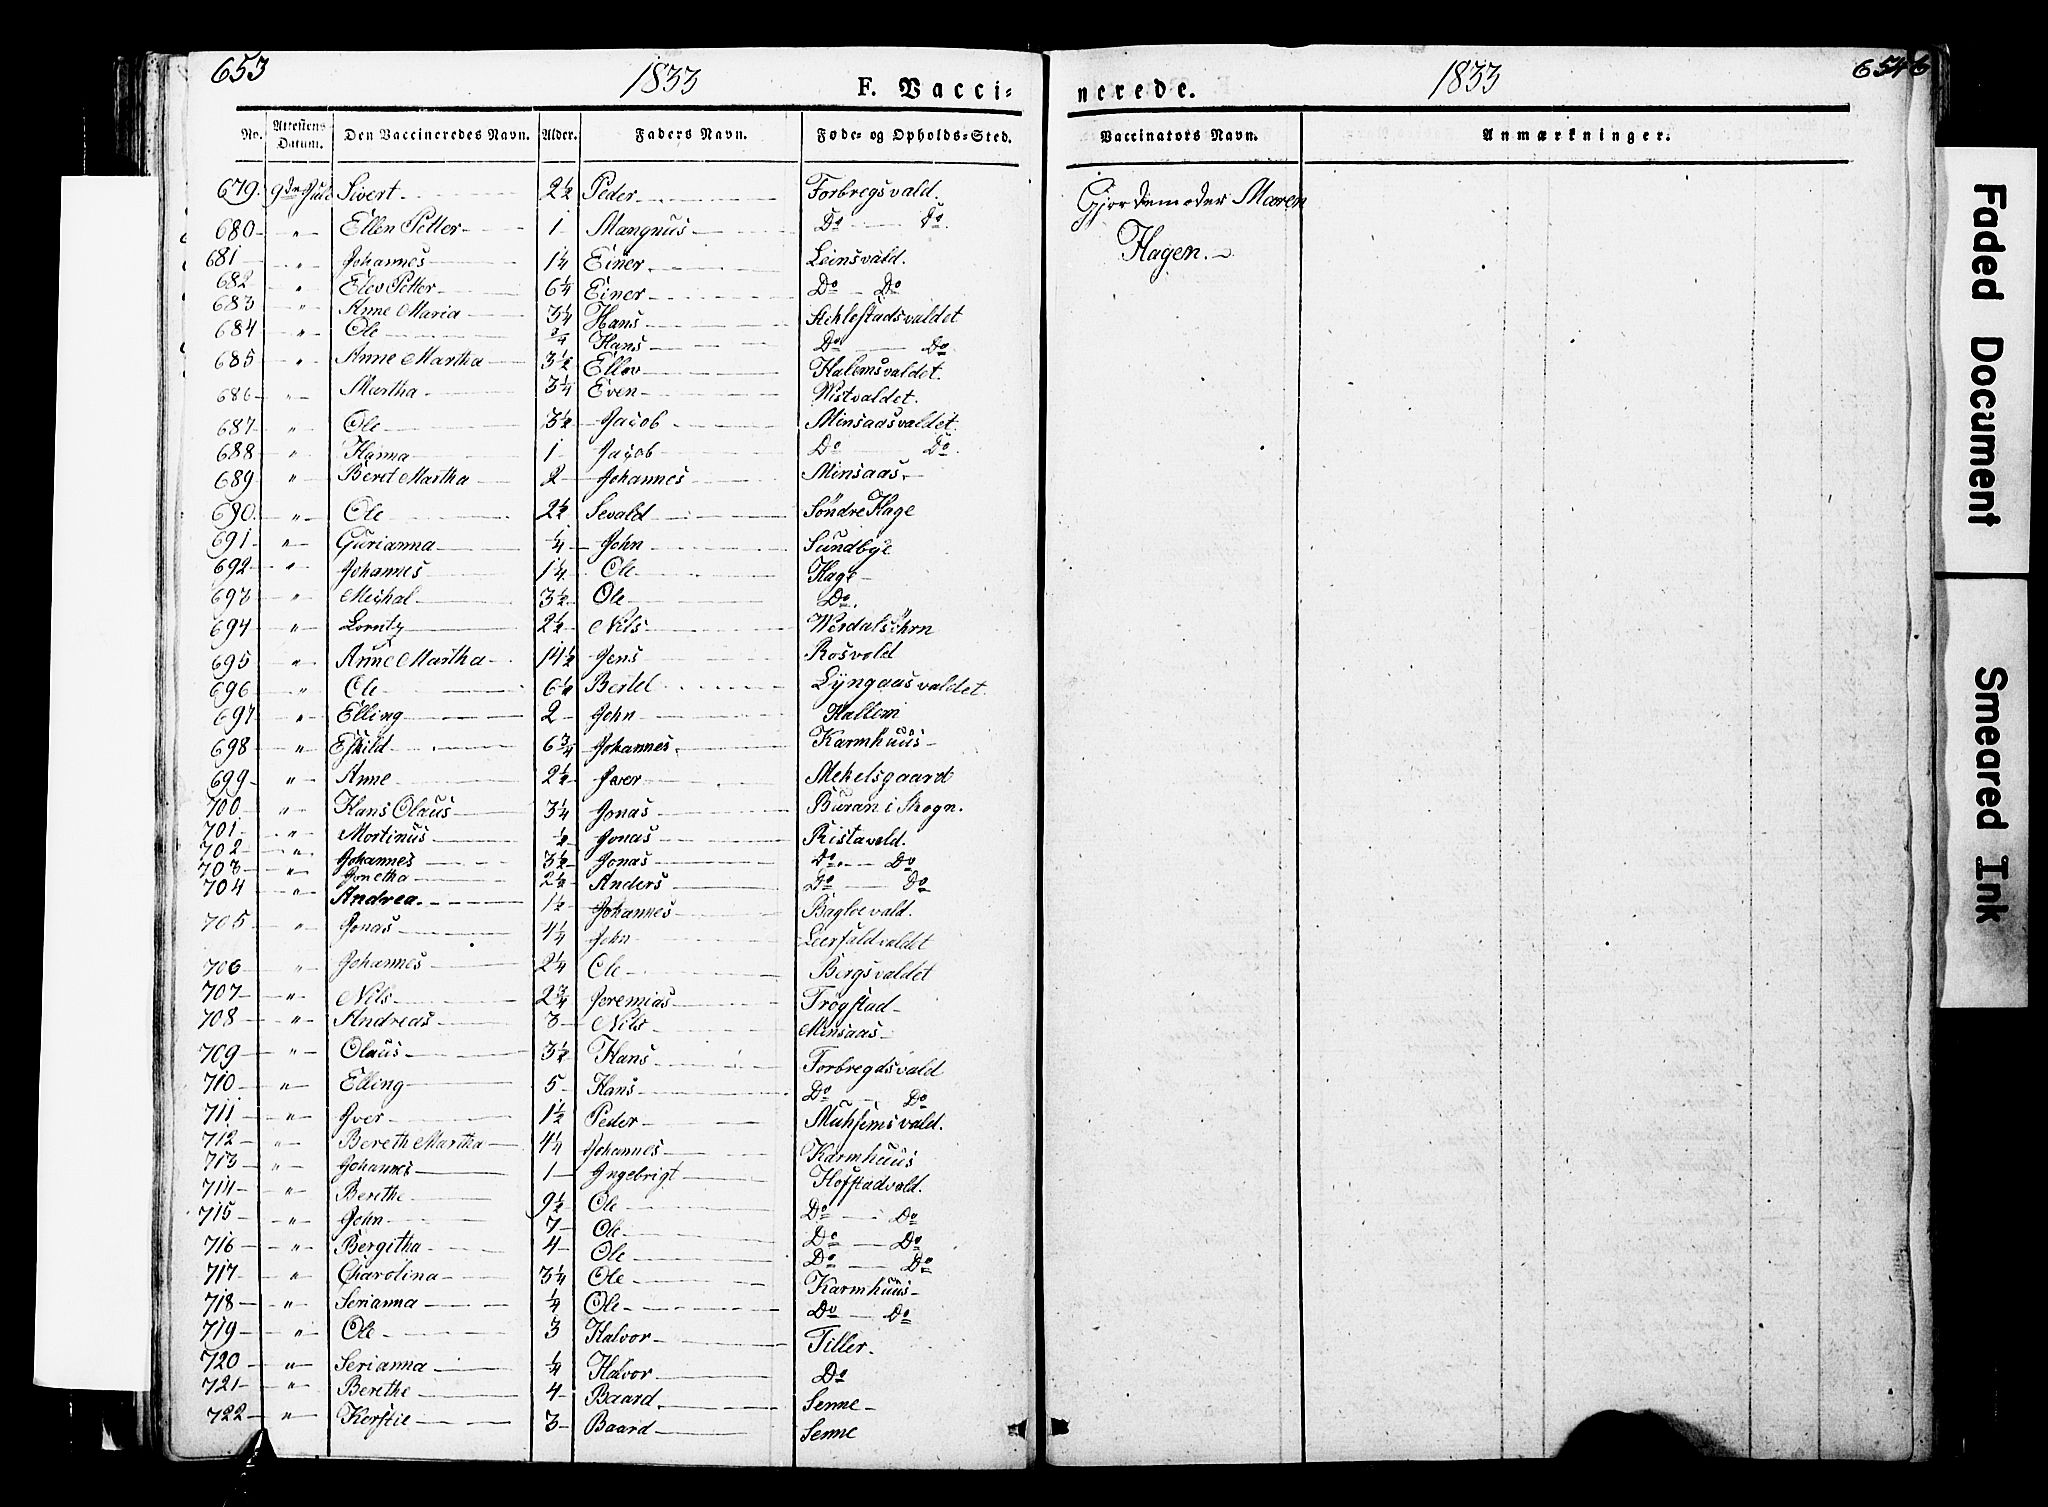 653
1833
F. Vacci=
nerede.
1833
654
No. Attestens Datum. Den Vaccineredes Navn. Alder. Faders Navn. Føde- og Opholds-Sted. Vaccinators Navn. Anmærkninger.
679. 9de Juli Sivert 2½ Peder Forbregsvald. Gjordemoder Maren
680 " Ellen Petter 1 Mangnus Do Do. Hagen.
681 " Johannes 1¼ Einer Leinsvald.
682 " Elev Petter 6¼ Einer Do Do
683 " Anne Maria 3¼ Hans Stiklestadsvaldet
684 " Ole ¾ Hans Do Do
685 " Anne Martha 3½ Ellev Halemsvaldet.
686 " Martha 3¼ Even Wistvaldet.
687 " Ole 3½ Jacob Minsaasvaldet.
688 " Hanna 1 Jacob Do Do.
689 " Beret Martha 2 Johannes Minsaas
690. " Ole 2½ Sevald Søndre Hage
691 " Gurianna ¼ John Sundbye
692 " Johannes 1¼ Ole Hage
693 " Michal 3½ Ole Do.
694 " Lorntz 2½ Nils Werdalsöhrn
695 " Anne Martha 14½ Jens Rosvold
696 " Ole 6½ Bertel Lyngaasvaldet
697 " Elling 2 John Hallem
698 " Eskild 6¾ Johannes Karmhuus
699 " Anne 2½ Iver Mehelsgaard
700 " Hans Olaus 3¼ Jonas Buran i Skogn.
701 " Mortinus ½ Jonas Ristavold.
702 " Johannes 3½ Jonas Do Do
703 " Jonetha 2½ Anders Do Do
704 " Andrea 1½ Johannes Bagloevald.
705 " Jonas 4¼ John Leerfaldvaldet
706 " Johannes 2¼ Ole Bergsvaldet
707 " Nils 2¾ Jeremias Trögstad
708 " Andreas 3 Nils Minsaas
709 " Olaus 3½ Hans Forbregdsvald
710 " Elling 5 Hans Do Do
711 " Iver 1½ Peder
712 " Bereth Martha 4¼ Johannes Karmhuus
713 " Johannes 1 Ingebrigt Hofstadvald.
714 " Berethe 9½ Ole Do Do
715 " John 7 Ole Do Do
716 " Bergitha 4 Ole Do Do
717 " Charolina 3¼ Ole Karmhuus
718 " Serianna ¼ Ole Do Do
719 " Ole 3 Halvor Tiller.
720 " Serianna ¼ Halvor Do
721 " Berethe 4 Baard Senne
722 " Kerstie 3 Baard Senne
Faded Document
Smeared Ink